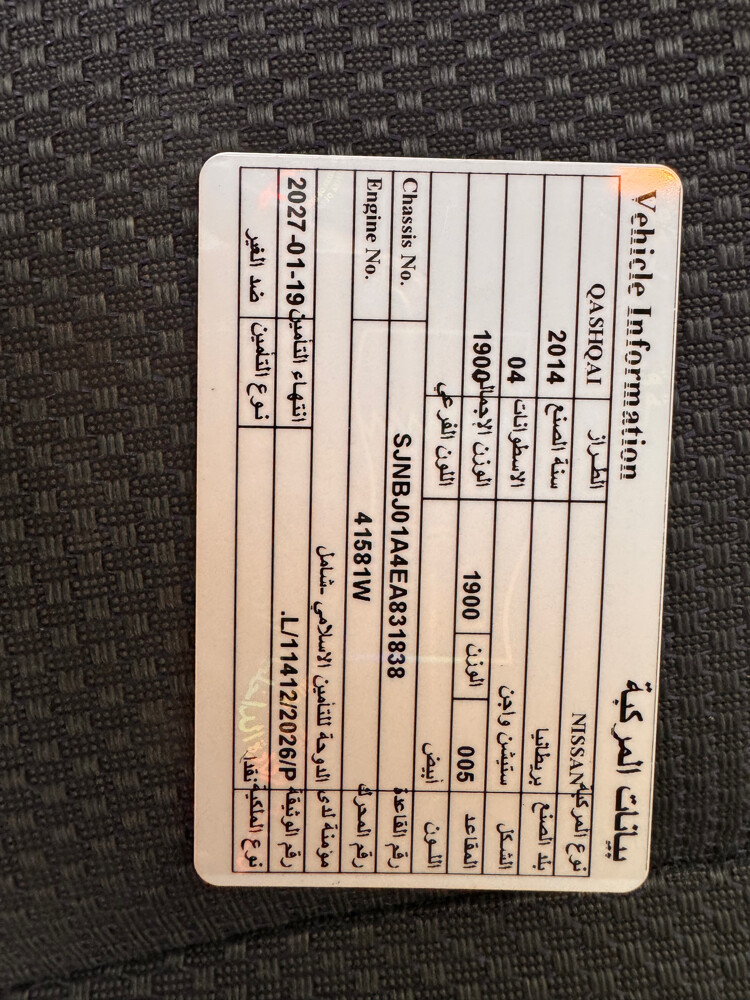 Vehicle Information بيانات المركبة
نوع المركبة NISSAN الطراز QASHQAI
بلد الصنع بريطانيا سنة الصنع 2014
الشكل ستيشن واجن الاسطوانات 04
المقاعد 005 الوزن 1900 الوزن الإجمالي 1900
اللون أبيض اللون الفرعي
رقم القاعدة SJNBJ01A4EA831838 Chassis No.
رقم المحرك 41581W Engine No.
مؤمنة لدى الدوحة للتأمين الاسلامي -شامل
رقم الوثيقة L/11412/2026/P. انتهاء التأمين 2027-01-19
نوع الملكية نقدا نوع التأمين ضد الغير